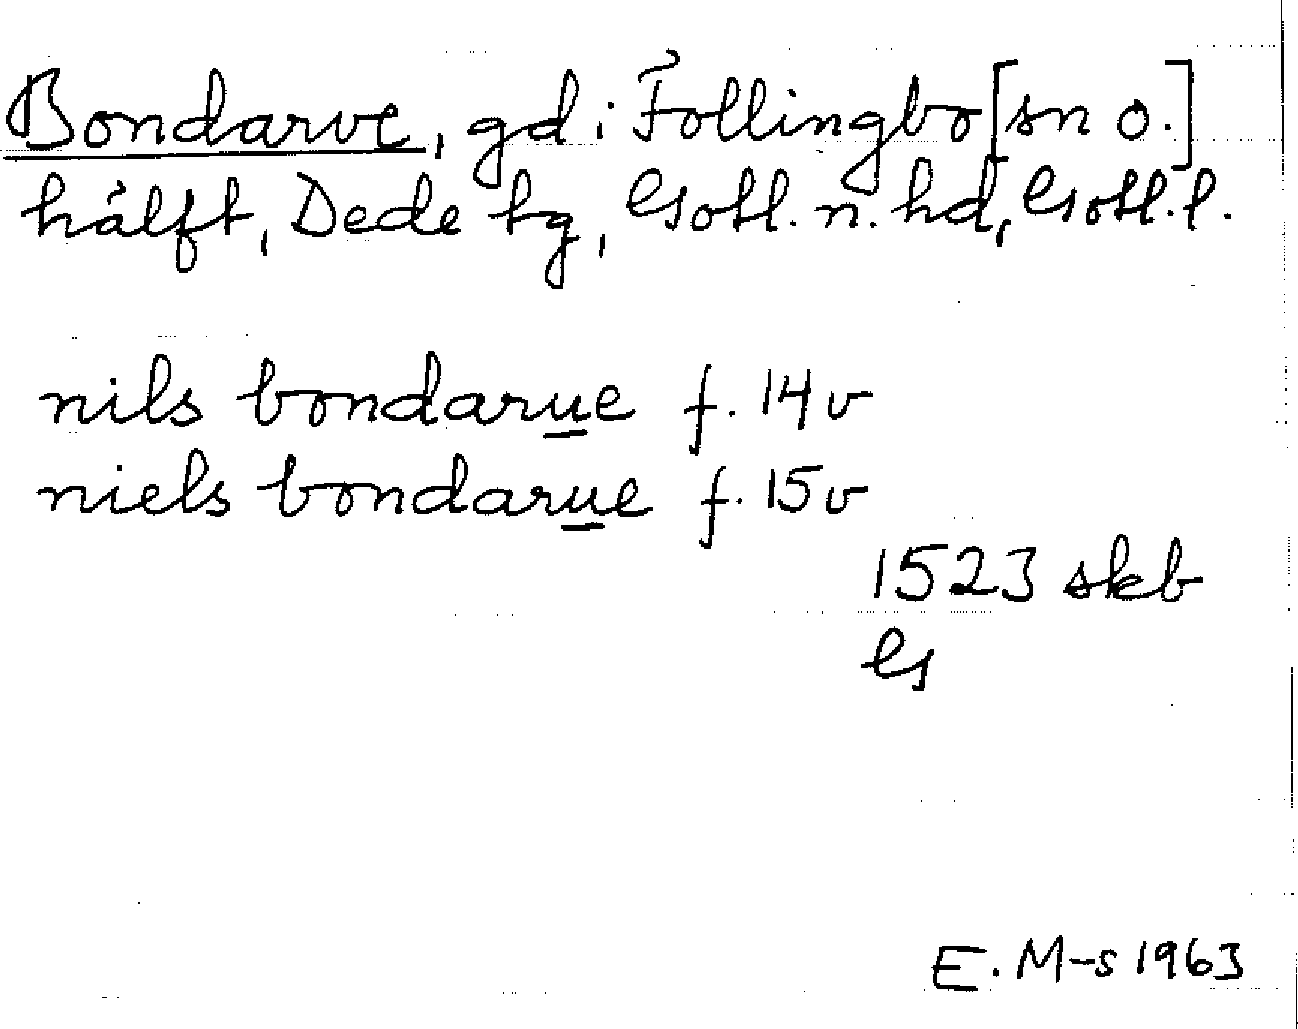 Bondarve, gd i Follingbo [sn o.]
hälft, Dede tg, Gotl. n. hd, Gotl. l.
nils bondarue f. 14v
niels bondarue f. 15v
1523 skb
G
E. M-s 1963